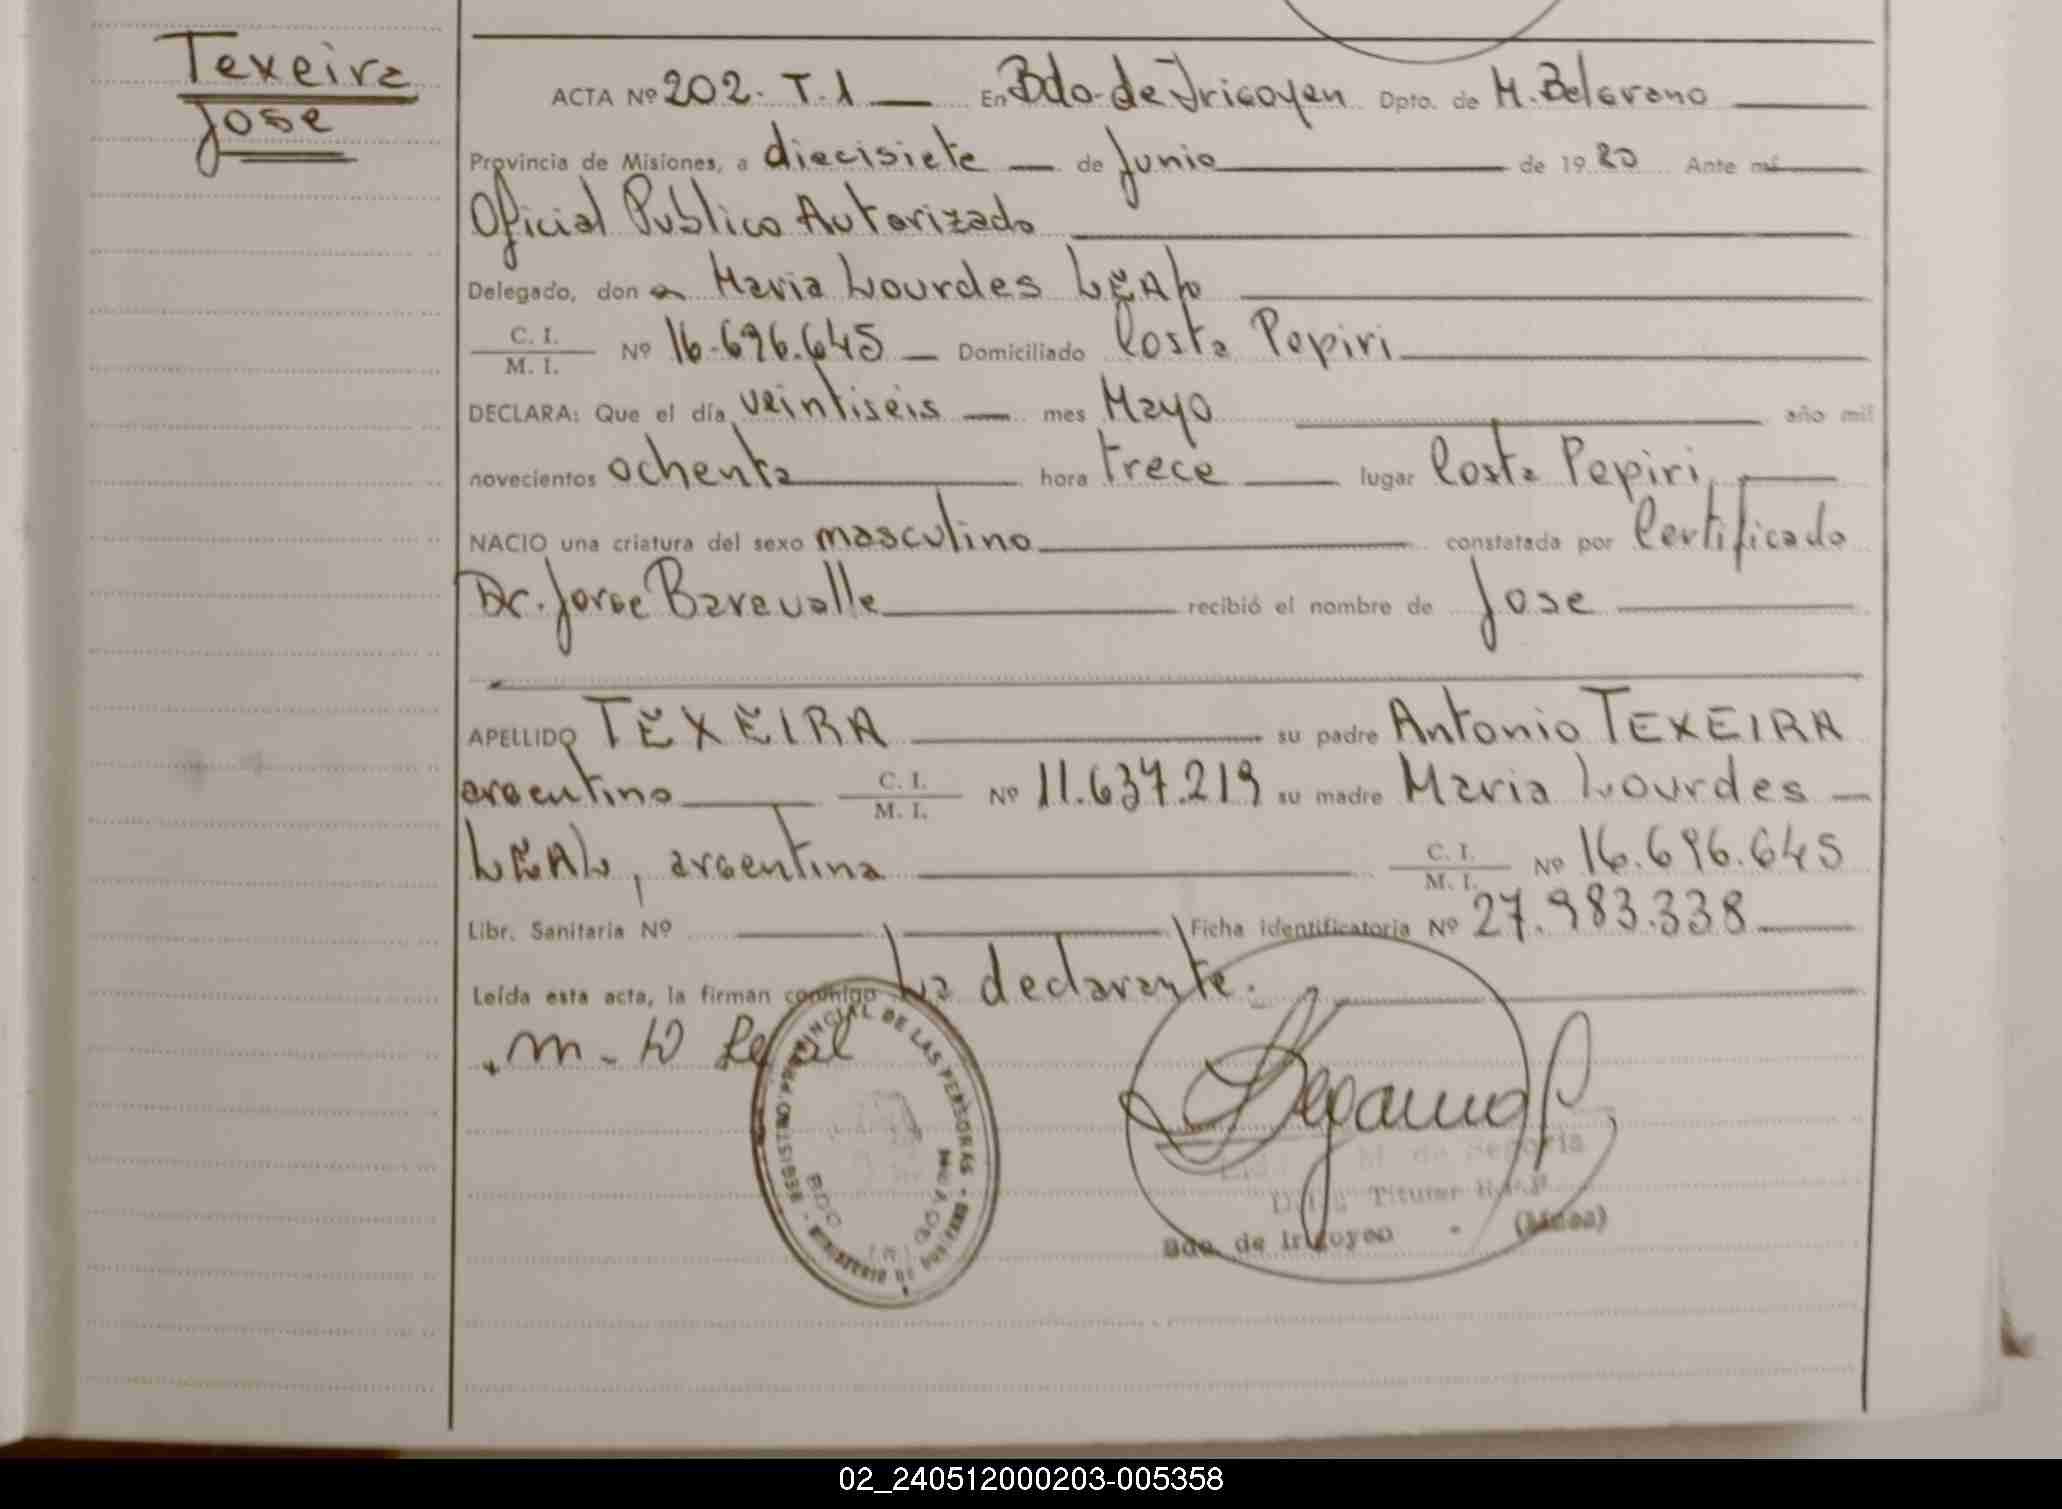 Texeira
Jose
ACTA Nº 202. T.1 En Bdo. de Irigoyen Dpto. de M. Belgrano
Provincia de Misiones, a diecisiete de Junio de 1980 Ante mí
Oficial Publico Autorizado
Delegado, don a Maria Lourdes LEAL
C. I. / M. I. Nº 16.696.645 Domiciliado Costa Pepiri
DECLARA: Que el día veintiseis mes Mayo año mil
novecientos ochenta hora trece lugar Costa Pepiri,
NACIO una criatura del sexo masculino constatada por Certificado
Dr. Jorge Baravalle recibió el nombre de Jose
APELLIDO TEXEIRA su padre Antonio TEXEIRA
argentino C. I. / M. I. Nº 11.637.219 su madre Maria Lourdes
LEAL, argentina C. I. / M. I. Nº 16.696.645
Libr. Sanitaria Nº Ficha identificatoria Nº 27.983.338
Leída esta acta, la firman conmigo La declarante.
m - L Leal
PROVINCIAL DE LAS PERSONAS
BDO
M. de Segovia
Titular
Bdo. de Irigoyen - (Mnes)
02_240512000203-005358